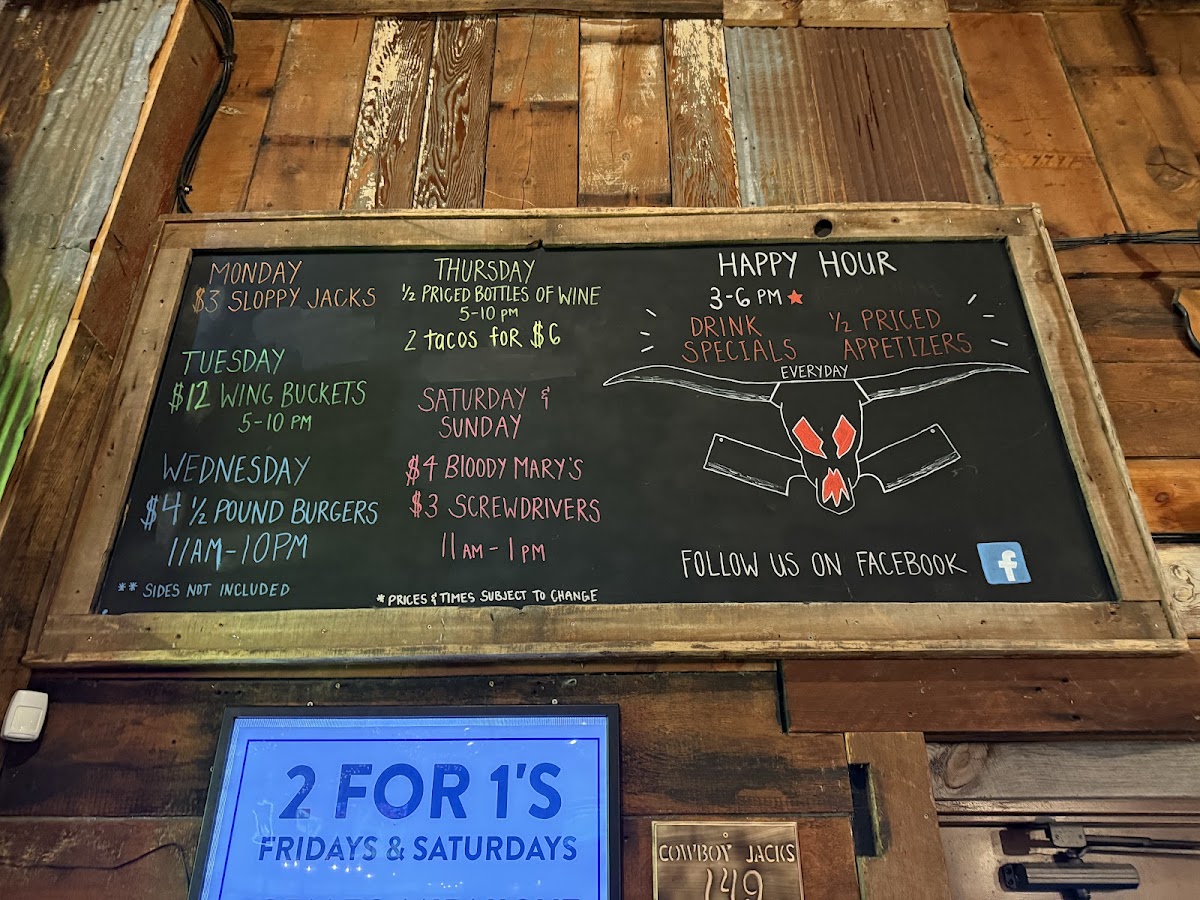 MONDAY
$3 SLOPPY JACKS
TUESDAY
$12 WING BUCKETS
5-10 PM
WEDNESDAY
$4 ½ POUND BURGERS
11AM-10PM
** SIDES NOT INCLUDED
THURSDAY
½ PRICED BOTTLES OF WINE
5-10 PM
2 tacos for $6
SATURDAY &
SUNDAY
$4 BLOODY MARY'S
$3 SCREWDRIVERS
11AM-1PM
* PRICES & TIMES SUBJECT TO CHANGE
HAPPY HOUR
3-6 PM
DRINK
SPECIALS
½ PRICED
APPETIZERS
EVERYDAY
FOLLOW US ON FACEBOOK
f
2 FOR 1'S
FRIDAYS & SATURDAYS
COWBOY JACKS
149